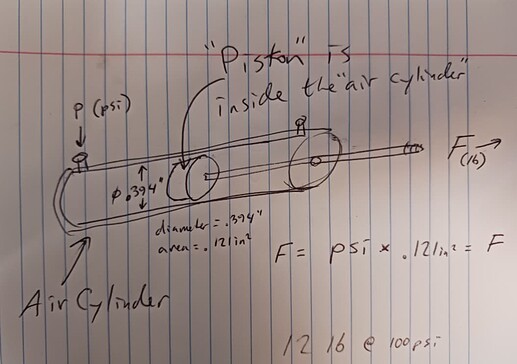 "Piston" is
inside the "air cylinder"
P (psi)
F (lb)
ϕ .394"
diameter = .394"
area = .121in²
F = psi × .121in² = F
Air Cylinder
12 lb @ 100psi